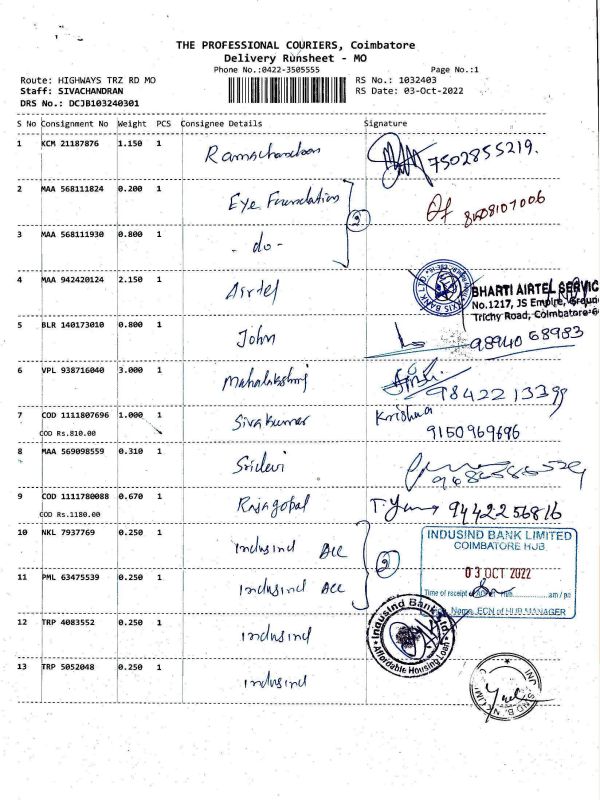 THE PROFESSIONAL COURIERS, Coimbatore
Delivery Runsheet - MO
Phone No.:0422-3505555 Page No.:1
Route: HIGHWAYS TRZ RD MO RS No.: 1032403
Staff: SIVACHANDRAN RS Date: 03-Oct-2022
DRS No.: DCJB103240301
S No Consignment No Weight PCS Consignee Details Signature
1 KCM 21187876 1.150 1 Ramachandran 7502855219.
2 MAA 568111824 0.200 1 Eye Foundation 2 8508107006
3 MAA 568111930 0.800 1 - do -
4 MAA 942420124 2.150 1 Airtel
BHARTI AIRTEL SERVIC
No.1217, JS Empire, Groun
Trichy Road, Coimbatore-6
5 BLR 140173010 0.800 1 John 98940 68983
6 VPL 938716040 3.000 1 Mahalakshmi 9842213399
7 COD 1111807696 1.000 1 Siva Kumar Krishna
COD Rs.810.00 9150969696
8 MAA 569098559 0.310 1 Sridevi
9 COD 1111780088 0.670 1 Rajagopal 9442256816
COD Rs.1180.00
10 NKL 7937769 0.250 1 Indusind
INDUSIND BANK LIMITED
COIMBATORE HUB
03 OCT 2022
11 PML 63475539 0.250 1 Indusind
Time of receipt am / pm
Name, ECN of HUB MANAGER
12 TRP 4083552 0.250 1 Indusind
IndusInd Bank Ltd
Affordable Housing Loan
13 TRP 5052048 0.250 1 Indusind